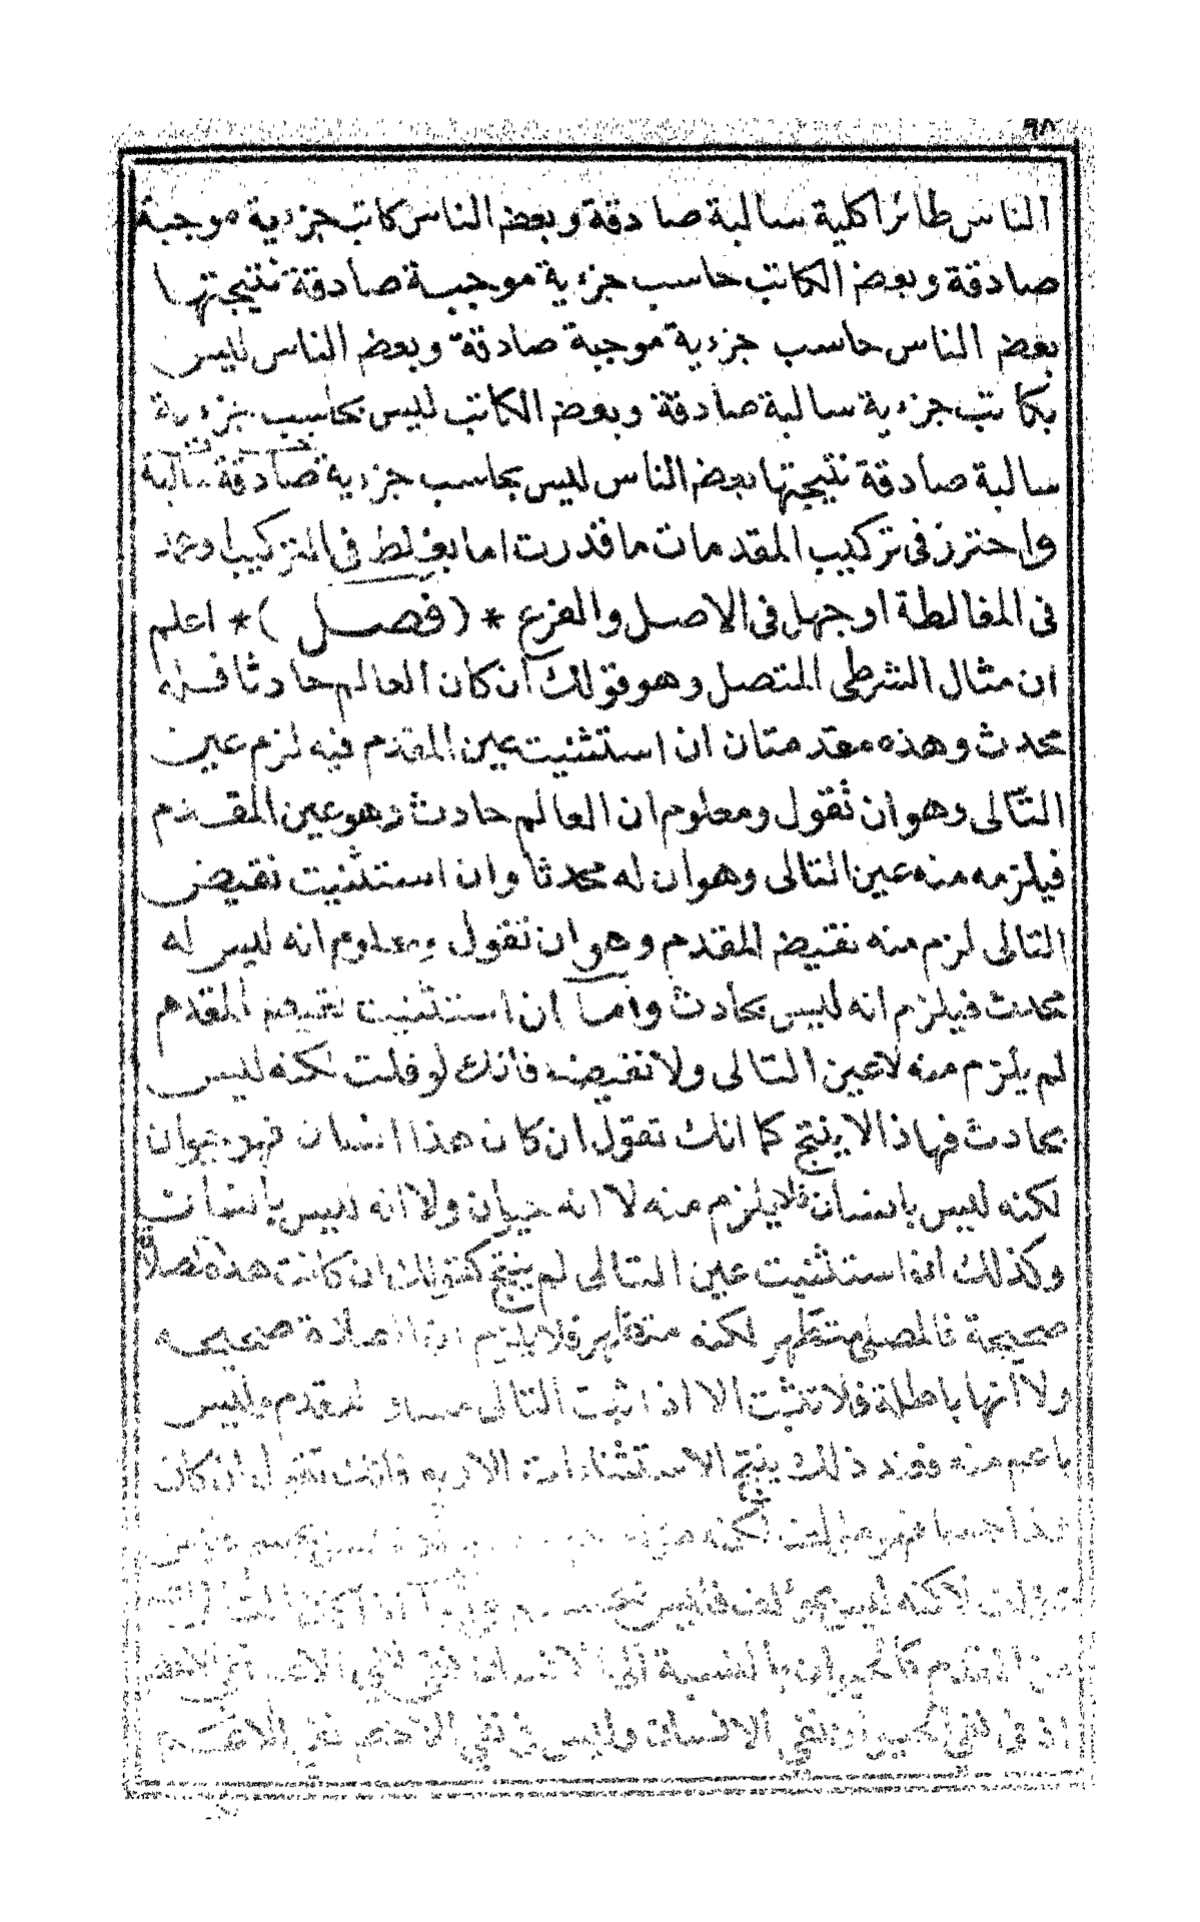 ٩٨
الناس طائرا كلية سالبة صادقة وبعض الناس كاتب جزءية موجبة
صادقة وبعض الكاتب حاسب جزءية موجبة صادقة نتيجتها
بعض الناس حاسب جزءية موجبة صادقة وبعض الناس ليس
بكاتب جزءية سالبة صادقة وبعض الكاتب ليس بحاسب جزءية
سالبة صادقة نتيجتها بعض الناس ليس بحاسب جزءية صادقة سالبة
واحترز في تركيب المقدمات ما قدرت اما بغلط في التركيب او عمد
في المغالطة او جهل في الاصل والفرع * (فصل) * اعلم
ان مثال الشرطى المتصل وهو قولك ان كان العالم حادثا فله
محدث وهذه مقدمتان ان استثنيت عين المقدم فيه لزم عين
التالى وهو ان تقول ومعلوم ان العالم حادث وهو عين المقدم
فيلزمه منه عين التالى وهو ان له محدثا وان استثنيت نقيض
التالى لزم منه نقيض المقدم وهو ان تقول ومعلوم انه ليس له
محدث فيلزم انه ليس بحادث واما ان استثنيت نقيض المقدم
لم يلزم منه لا عين التالى ولا نقيضه فانك لو قلت لكنه ليس
بحادث فهاذا لا ينتج كما انك تقول ان كان هذا انسان فهو حيوان
لكنه ليس بانسان فلا يلزم منه لا انه حيوان ولا انه ليس بانسان
وكذلك ان استثنيت عين التالى لم ينتج كقولك ان كانت هذه الصلاة
صحيحة فالمصلى متطهر لكنه متطهر فلا يلزم ان الصلاة صحيحه
ولا انها باطلة فلا تثبت الا اذا ثبت التالى مساو للمقدم وليس
باعم منه فعند ذلك ينتج الاستثناءات الاربع فانت تقول ان كان
هذا جسما فهو مؤلف لكنه
لاكنه ليس بمؤلف فليس
من المقدم كالحيوان بالنسبة الى الانسان
اذ في نفي الحيوان نفي الانسان وليس في نفي الاخص نفي الاعم